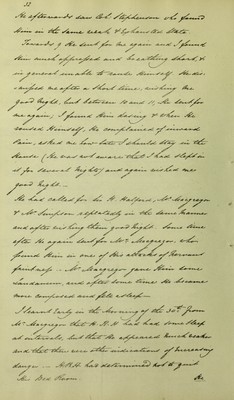 32
He afterwards saw Col. Stephenson who found
Him in the same weak & exhausted state.
Towards 9 He sent for me again and I found
Him much oppressed and breathing short &
in general unable to exert Himself. He dis-
-missed me after a short time, wishing me
good night, but between 10 and 11, He sent for
me again; I found Him dosing & when He
roused Himself, He complained of inward
Pain, asked me how late I should stay in the
House (He was not aware that I had slept in
it for several Nights) and again wished me
good night. _
He had called for Sir H. Halford, Mr. Macgregor
& Mr. Simpson repeatedly in the same manner
and after wishing them good night. Some time
after He again sent for Mr. Macgregor, who
found Him in one of His attacks of nervous
faintness _ Mr. Macgregor gave Him some
Laudanum, and after some time He became
more composed and fell asleep _
I learnt early in the Morning of the 30th. from
Mr. Macgregor that H.R.H. had had some sleep
at intervals, but that He appeared much weaker
and that there were other indications of increasing
danger _ H.R.H. had determined not to quit
His Bed Room.
He